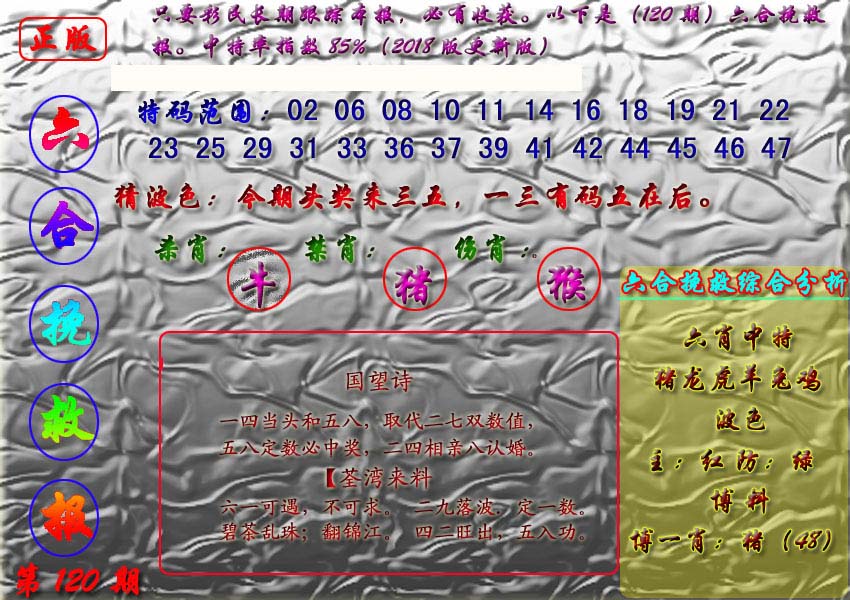 正版
只要彩民长期跟踪本报，必有收获。以下是（120期）六合挽救
报。中特率指数85%（2018版更新版）
六合挽救报
第120期
特码范围：02 06 08 10 11 14 16 18 19 21 22
23 25 29 31 33 36 37 39 41 42 44 45 46 47
猜波色：今期头奖来三五，一三有码五在后。
杀肖：牛 禁肖：猪 伤肖：猴。
国望诗
一四当头和五八，取代二七双数值，
五八定数必中奖，二四相亲八认婚。
【荃湾来料
六一可遇，不可求。二九落波．定一数。
碧茶乱珠；翻锦江。四二旺出，五入功。
六合挽救综合分析
六肖中特
猪龙虎羊兔鸡
波色
主：红防：绿
博料
博一肖：猪（48）